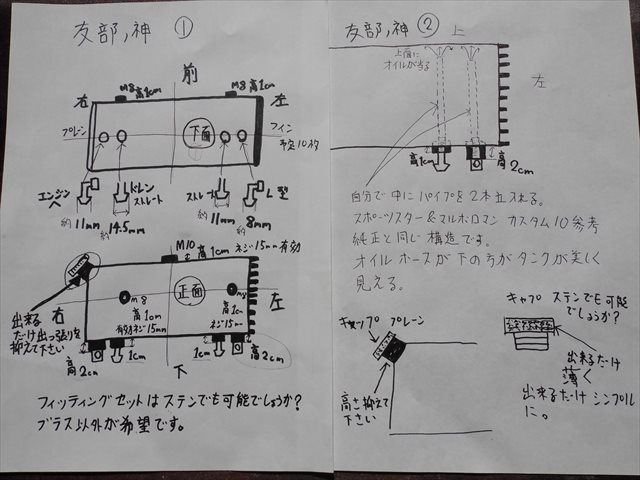 友部ノ神 ①
前
M8高1cm
M8高1cm
右
左
プレーン
下面
フィン
予定10枚
エンジンへ
ドレン
ストレート
ストレート
L型
約11mm
約14.5mm
約11mm
約8mm
M10
高1cm ネジ15mm有効
右
正面
左
M8
高1cm
有効ネジ15mm
M8
高1cm
ネジ15m
出来る
だけ出っ張りを
抑えて下さい
高2cm
1cm
1cm
高2cm
下
フィッティングセットはステンでも可能でしょうか?
ブラス以外が希望です。
友部ノ神 ②
上
上面に
オイルが当る
左
高1cm
高2cm
自分で中にパイプを2本立入れる。
スポーツスター&マルボロマン カスタム10参考
純正と同じ構造です。
オイルホースが下の方がタンクが美しく
見える。
キャップ プレーン
高さ抑えて
下さい
キャプ ステンでも可能
でしょうか?
出来るだけ
薄く
出来るだけシンプル
に。